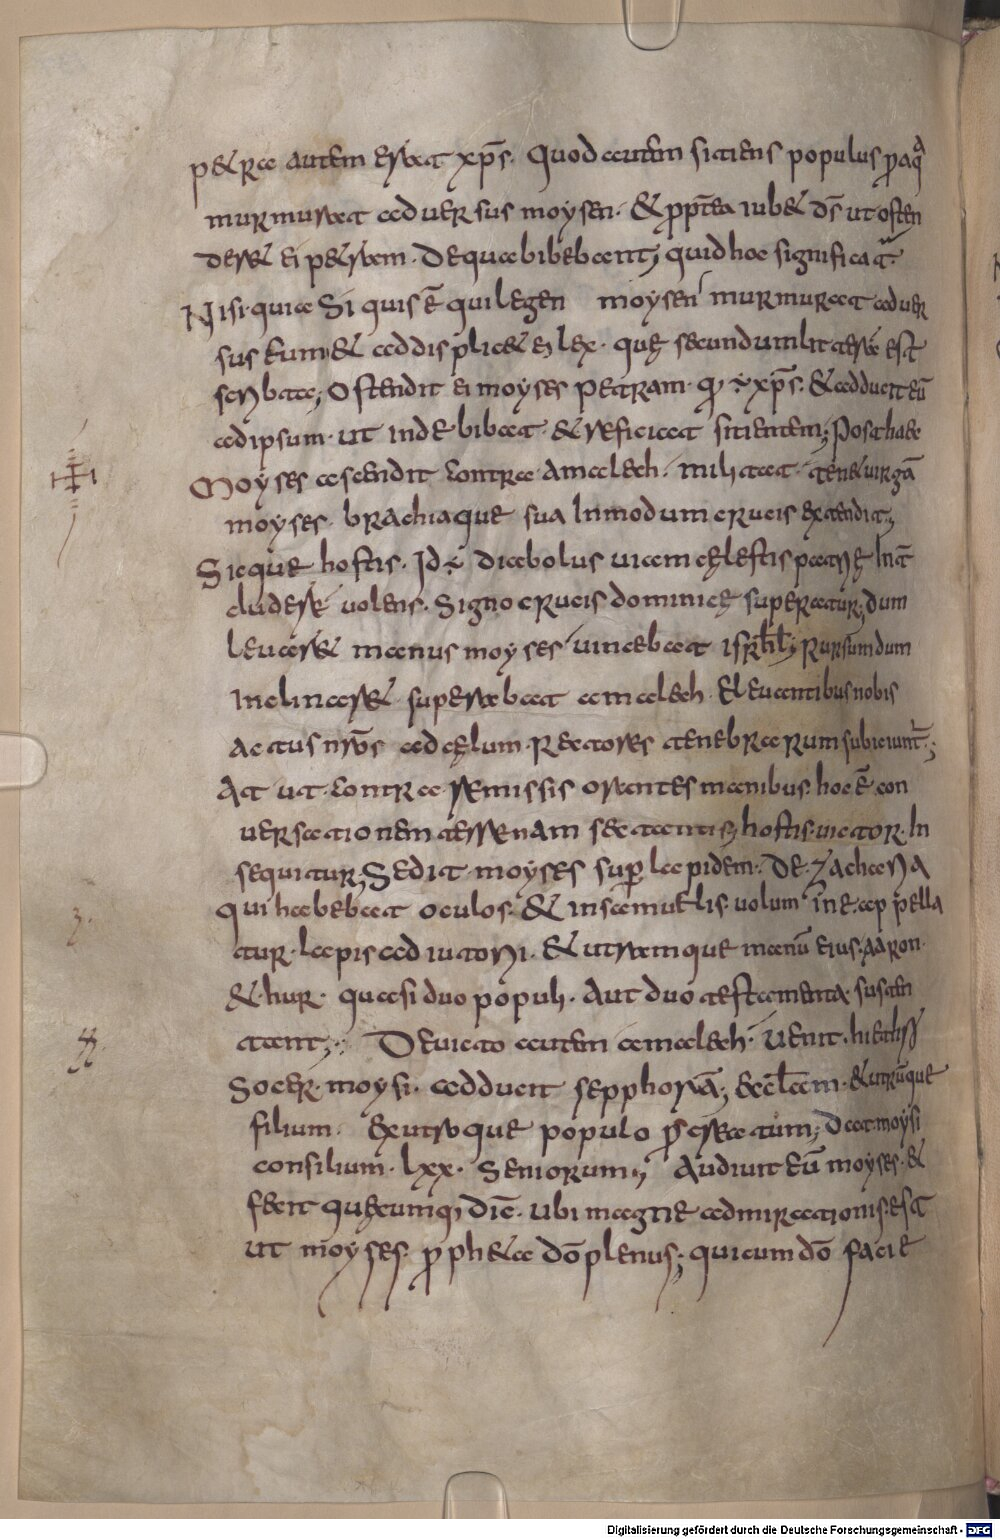 petra autem erat xp̄s. Quod autem sitiens populus p aq̄
murmurat aduersus moysen. & ppt̄ea iubet ds̄ ut osten
deret ei petram. De qua biberent; quid hoc significat.
Nisi quia Si quis ē qui legen moysen murmurat aduer
sus eum & addisplicet ei lex. quę secundum littera est
scribata; Ostendit ei moyses petram. qđ ÷ xp̄s. & adducit eū
ad ipsum. ut inde bibat. & reficiat sitientem; Post haec
Moyses ascendit contra amalech. militat. tenet uirgā
moyses. brachiaque sua In modum crucis extendit;
Sicque hostis. Id ÷ diabolus uicem cęlestis patrię Int̄
cludere uolens. Signo crucis dominicę superatur; dum
leuaret manus moyses uincebat isrl̄; Rursum dum
Inclinaret superabat amalech. Eleuantibus nobis
actus nr̄os ad cęlum. Rectores tenebrarum subiciunt̄;
At ut contra remissis orantes manibus. hoc ē con
uersationem terrenam sectantis; hostis uictor. In
sequitur; Sedit moyses sup lapidem. De zacharia
qui habebat oculos. & in samuelis uolumine appella
tur. lapis adiutorii. & utramque manū eius. aaron.
& hur. quasi duo populi. Aut duo testamenta susten
tant; Deuicto autem amalech. Uenit.
Socer. moysi. adducit sepphoram; & ecl̄am. & utrūque
filium. ex utroque populo p creatum; Dat moysi
consilium. lxx. Seniorum; Audiuit eū moyses. &
fecit quęcumq; dix̄. ubi magne admirationis. est
ut moyses. pphęta dō plenus; qui cum dō facie